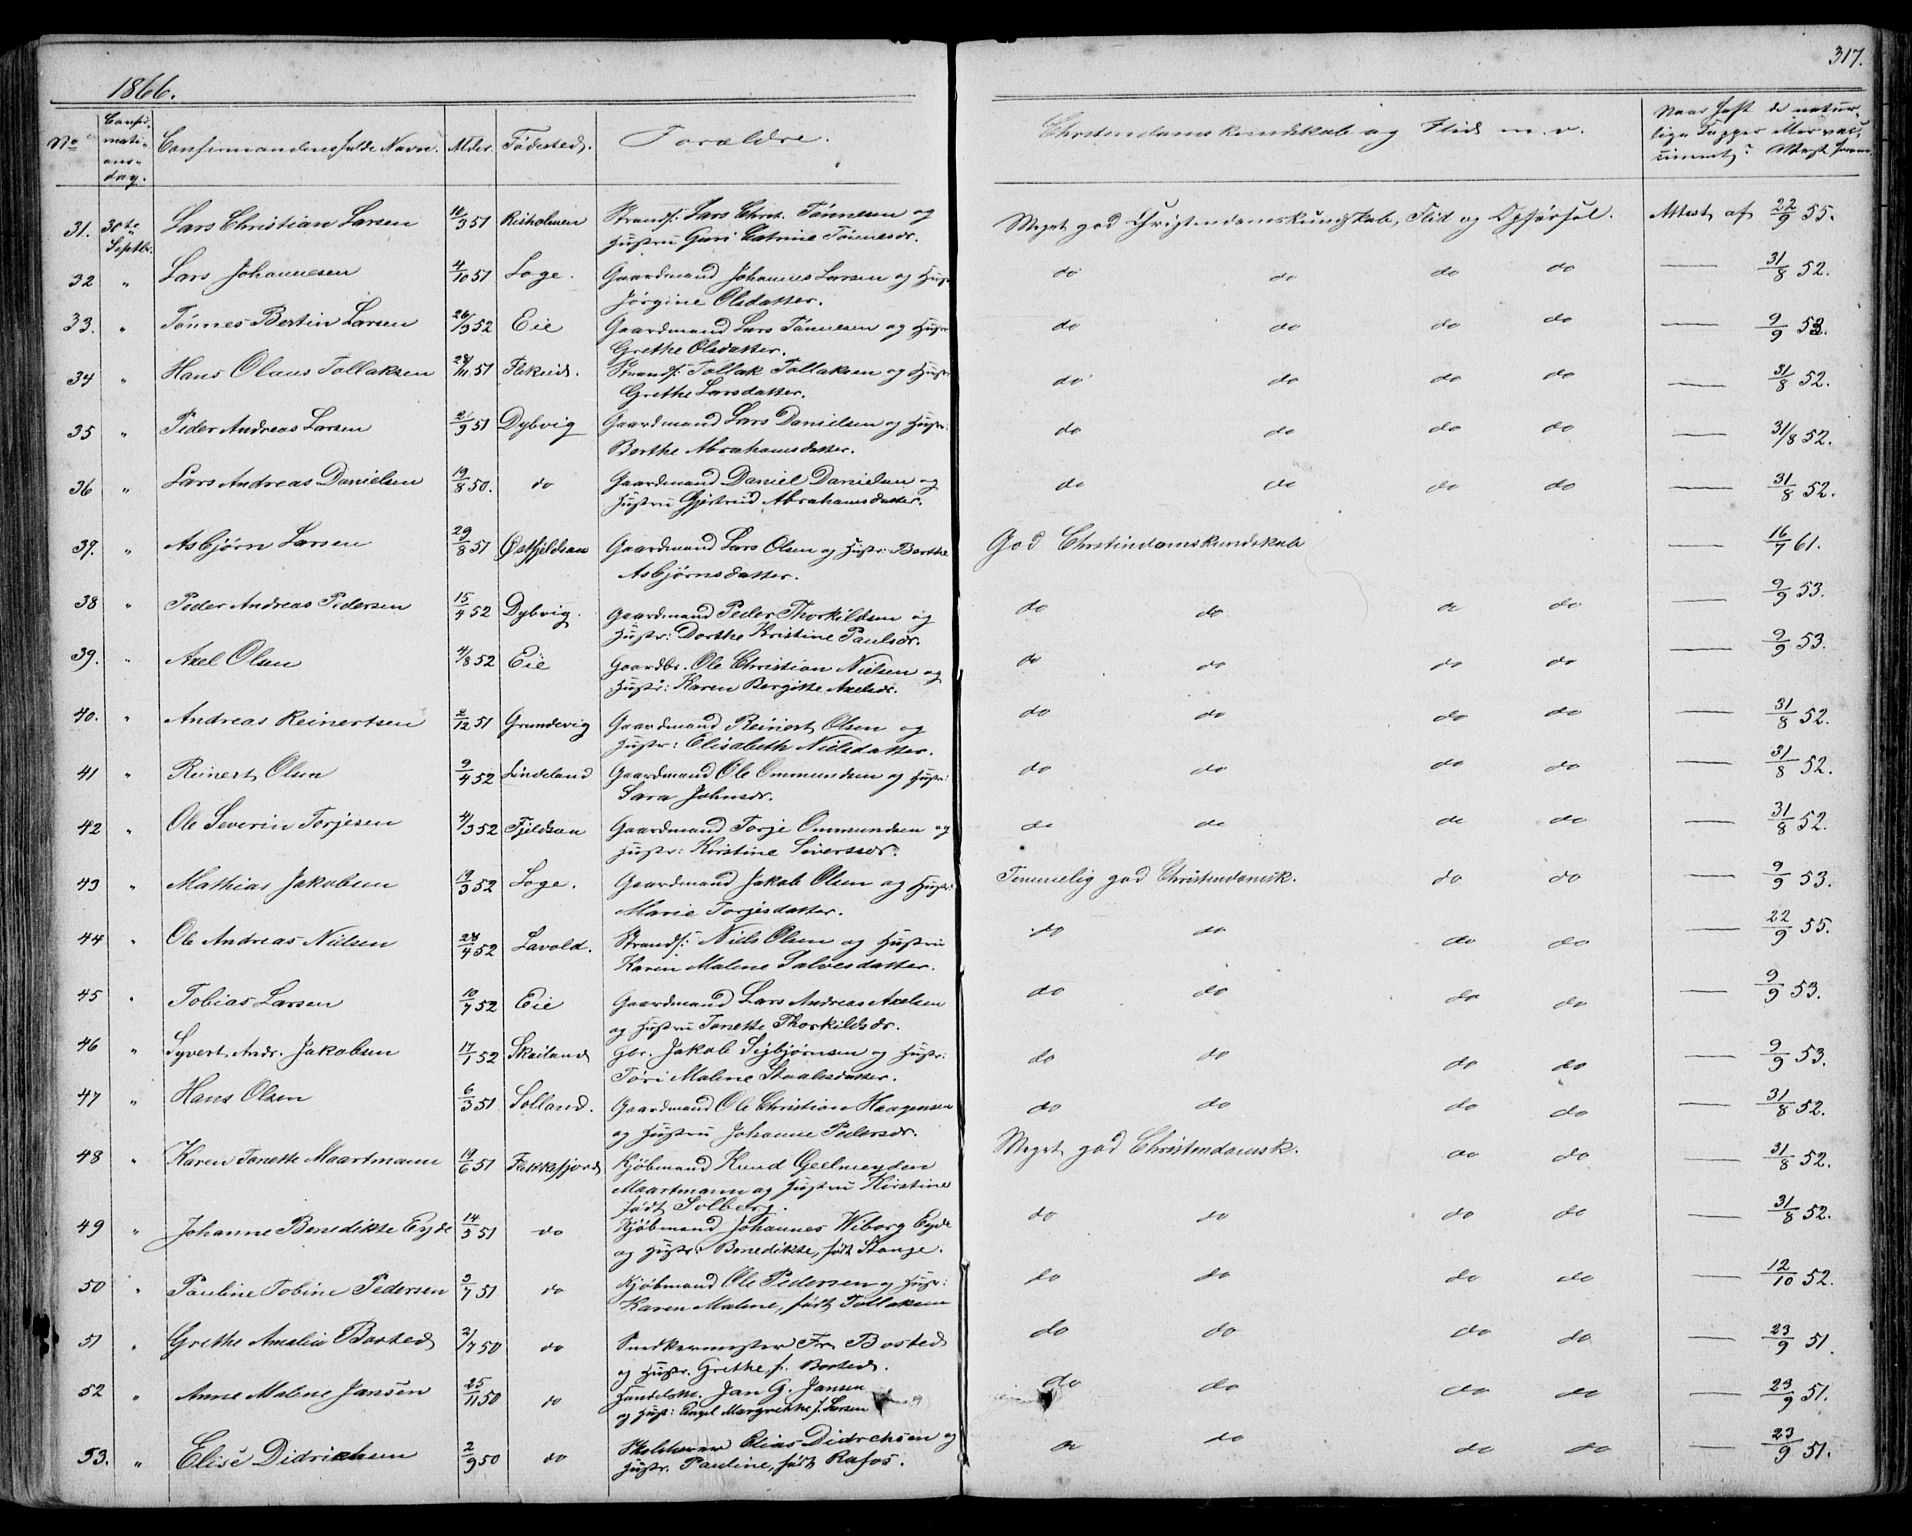 1866.
317.
No Confirmationsdag. Confirmandens fulde Navn. Alder. Fødested. Forældre. Christendomskundskab og Flid m. v. Naar haft de naturlige Kopper eller vaccineret? Attest herom.
31. 30te Septbr. Lars Christian Larsen 10/3 51 Risholmen Strands: Lars Christ. Tønnesen og Meget god Christendomskundskab, Flid og Opførsel. Attest af 22/9 55.
Hustru Guri Catrine Tønnesdr.
32 " Lars Johannesen 4/10 51 Loge. Gaardmand Johannes Larsen og Hustr. do do do do — 31/8 52.
Jørgine Olsdatter.
33. " Tønnes Bertin Larsen 26/3 52 Eie Gaardmand Lars Tønnesen og Hustr. do do do do — 9/9 53.
Grethe Olsdatter.
34 " Hans Olaus Tollaksen 28/11 51 Flekeid. Strands: Tollak Tollaksen og Hustr. do do do do — 31/8 52.
Grethe Larsdatter.
35 " Peder Andreas Larsen 2/9 51 Dybvig Gaardmand Lars Danielsen og Hustr: do do do do — 31/8 52.
Berthe Abrahamsdatter.
36 " Lars Andreas Danielsen 19/8 50. do Gaardmand Daniel Danielsen og do do do do — 31/8 52.
Hustru Gjertrud Abrahamsdatter.
37. " Asbjørn Larsen 29/8 51 Østfjeldsaa Gaardmand Lars Olsen og Hustr: Berthe God Christendomskundskab — 16/7 61.
Asbjørnsdatter.
38 " Peder Andreas Pedersen 15/4 52 Dybvig. Gaardmand Peder Thorkildsen og do do do do — 9/9 53.
Hustr: Dorthe Kristine Paulsdr.
39. " Axel Olsen 4/8 52 Eie Gaardbr. Ole Christian Nielsen og do do do do — 9/9 53.
Hustr: Karen Bergitte Axelsdr.
40. " Andreas Reinertsen 2/12 51 Grundevig Gaardmand Reinert Olsen og do do do do — 31/8 52.
Hustr: Elisabeth Nielsdatter.
41 " Reinert Olsen 9/4 52 Lindeland Gaardmand Ole Ommundsen og Hustr: do do do do — 31/8 52.
Sara Johnsdr.
42 " Ole Severin Torjesen 4/3 52 Fjeldsaa Gaardmand Torje Ommundsen og do do do do — 31/8 52.
Hustr: Kirstine Sivertsdr.
43 " Mathias Jakobsen 19/3 52 Loge. Gaardmand Jakob Olsen og Hustr: Temmelig god Christendomsk. do do — 9/9 53.
Marie Torjesdatter.
44 " Ole Andreas Nielsen 28/4 52 Lavold. Strands: Niels Olsen og Hustru do do do do — 22/9 55.
Karen Malene Salvesdatter.
45 " Tobias Larsen 10/7 52 Eie Gaardmand Lars Andreas Axelsen do do do do — 9/9 53.
og Hustru Tonette Thorkildsdr.
46 " Syvert Andr. Jakobsen 17/1 52 Skailand Gbr. Jakob Sigbjørnsen og Hustr: do do do do — 9/9 53.
Tøri Malene Staalesdatter.
47 " Hans Olsen 6/3 51 Solland. Gaardmand Ole Christian Haagensen do do do do — 31/8 52.
og Hustru Johanne Pedersdr.
48 " Karen Tonette Maartmann 19/6 51 Flekkefjord Kjøbmand Knud Geelmeyden Meget god Christendomsk. do do — 31/8 52.
Maartmann og Hustru Kirstine
født Solberg.
49 " Johanne Benedikte Eyde 14/5 51 do Kjøbmand Johannes Wiborg Eyde do do do do — 31/8 52.
og Hustr: Benedikte, født Stange.
50 " Pauline Tobine Pedersen 2/7 51 do Kjøbmand Ole Pedersen og Hustr: do do do do — 12/10 52.
Karen Malene, født Tollaksen
51 " Grethe Amalia Bosted 2/7 50 do Snedkermester Fr. Bosted do do do do — 23/9 51.
og Hustr. Grethe, f. Bosted.
52 " Anne Malene Jansen 25/11 50 do Handelsm. Jan G. Jansen do do do do — 23/9 51.
og Hust: Engel Margrethe f. Larsen
53. " Elise Didrichsen 2/9 50 do Elias Didrichsen og do do do do — 23/9 51.
Hustr. Pauline, født Rafos.